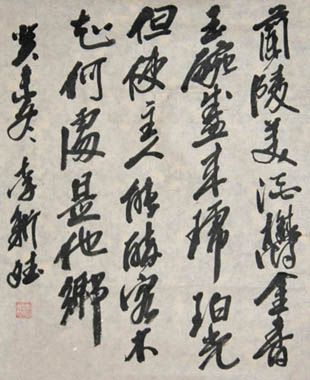 蘭陵美酒鬱金香
玉碗盛来琥珀光
但使主人能醉客不
知何處是他鄉
癸未冬 李新